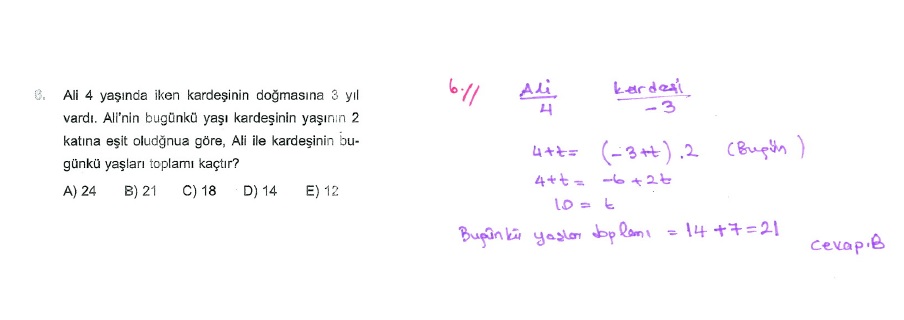 6. Ali 4 yaşında iken kardeşinin doğmasına 3 yıl
vardı. Ali'nin bugünkü yaşı kardeşinin yaşının 2
katına eşit oludğnua göre, Ali ile kardeşinin bu-
günkü yaşları toplamı kaçtır?
A) 24 B) 21 C) 18 D) 14 E) 12
6.// Ali kardeşi
4 -3
4+t = (-3+t).2 (Bugün)
4+t = -6+2t
10 = t
Bugünkü yaşlar toplamı = 14+7=21
Cevap:B